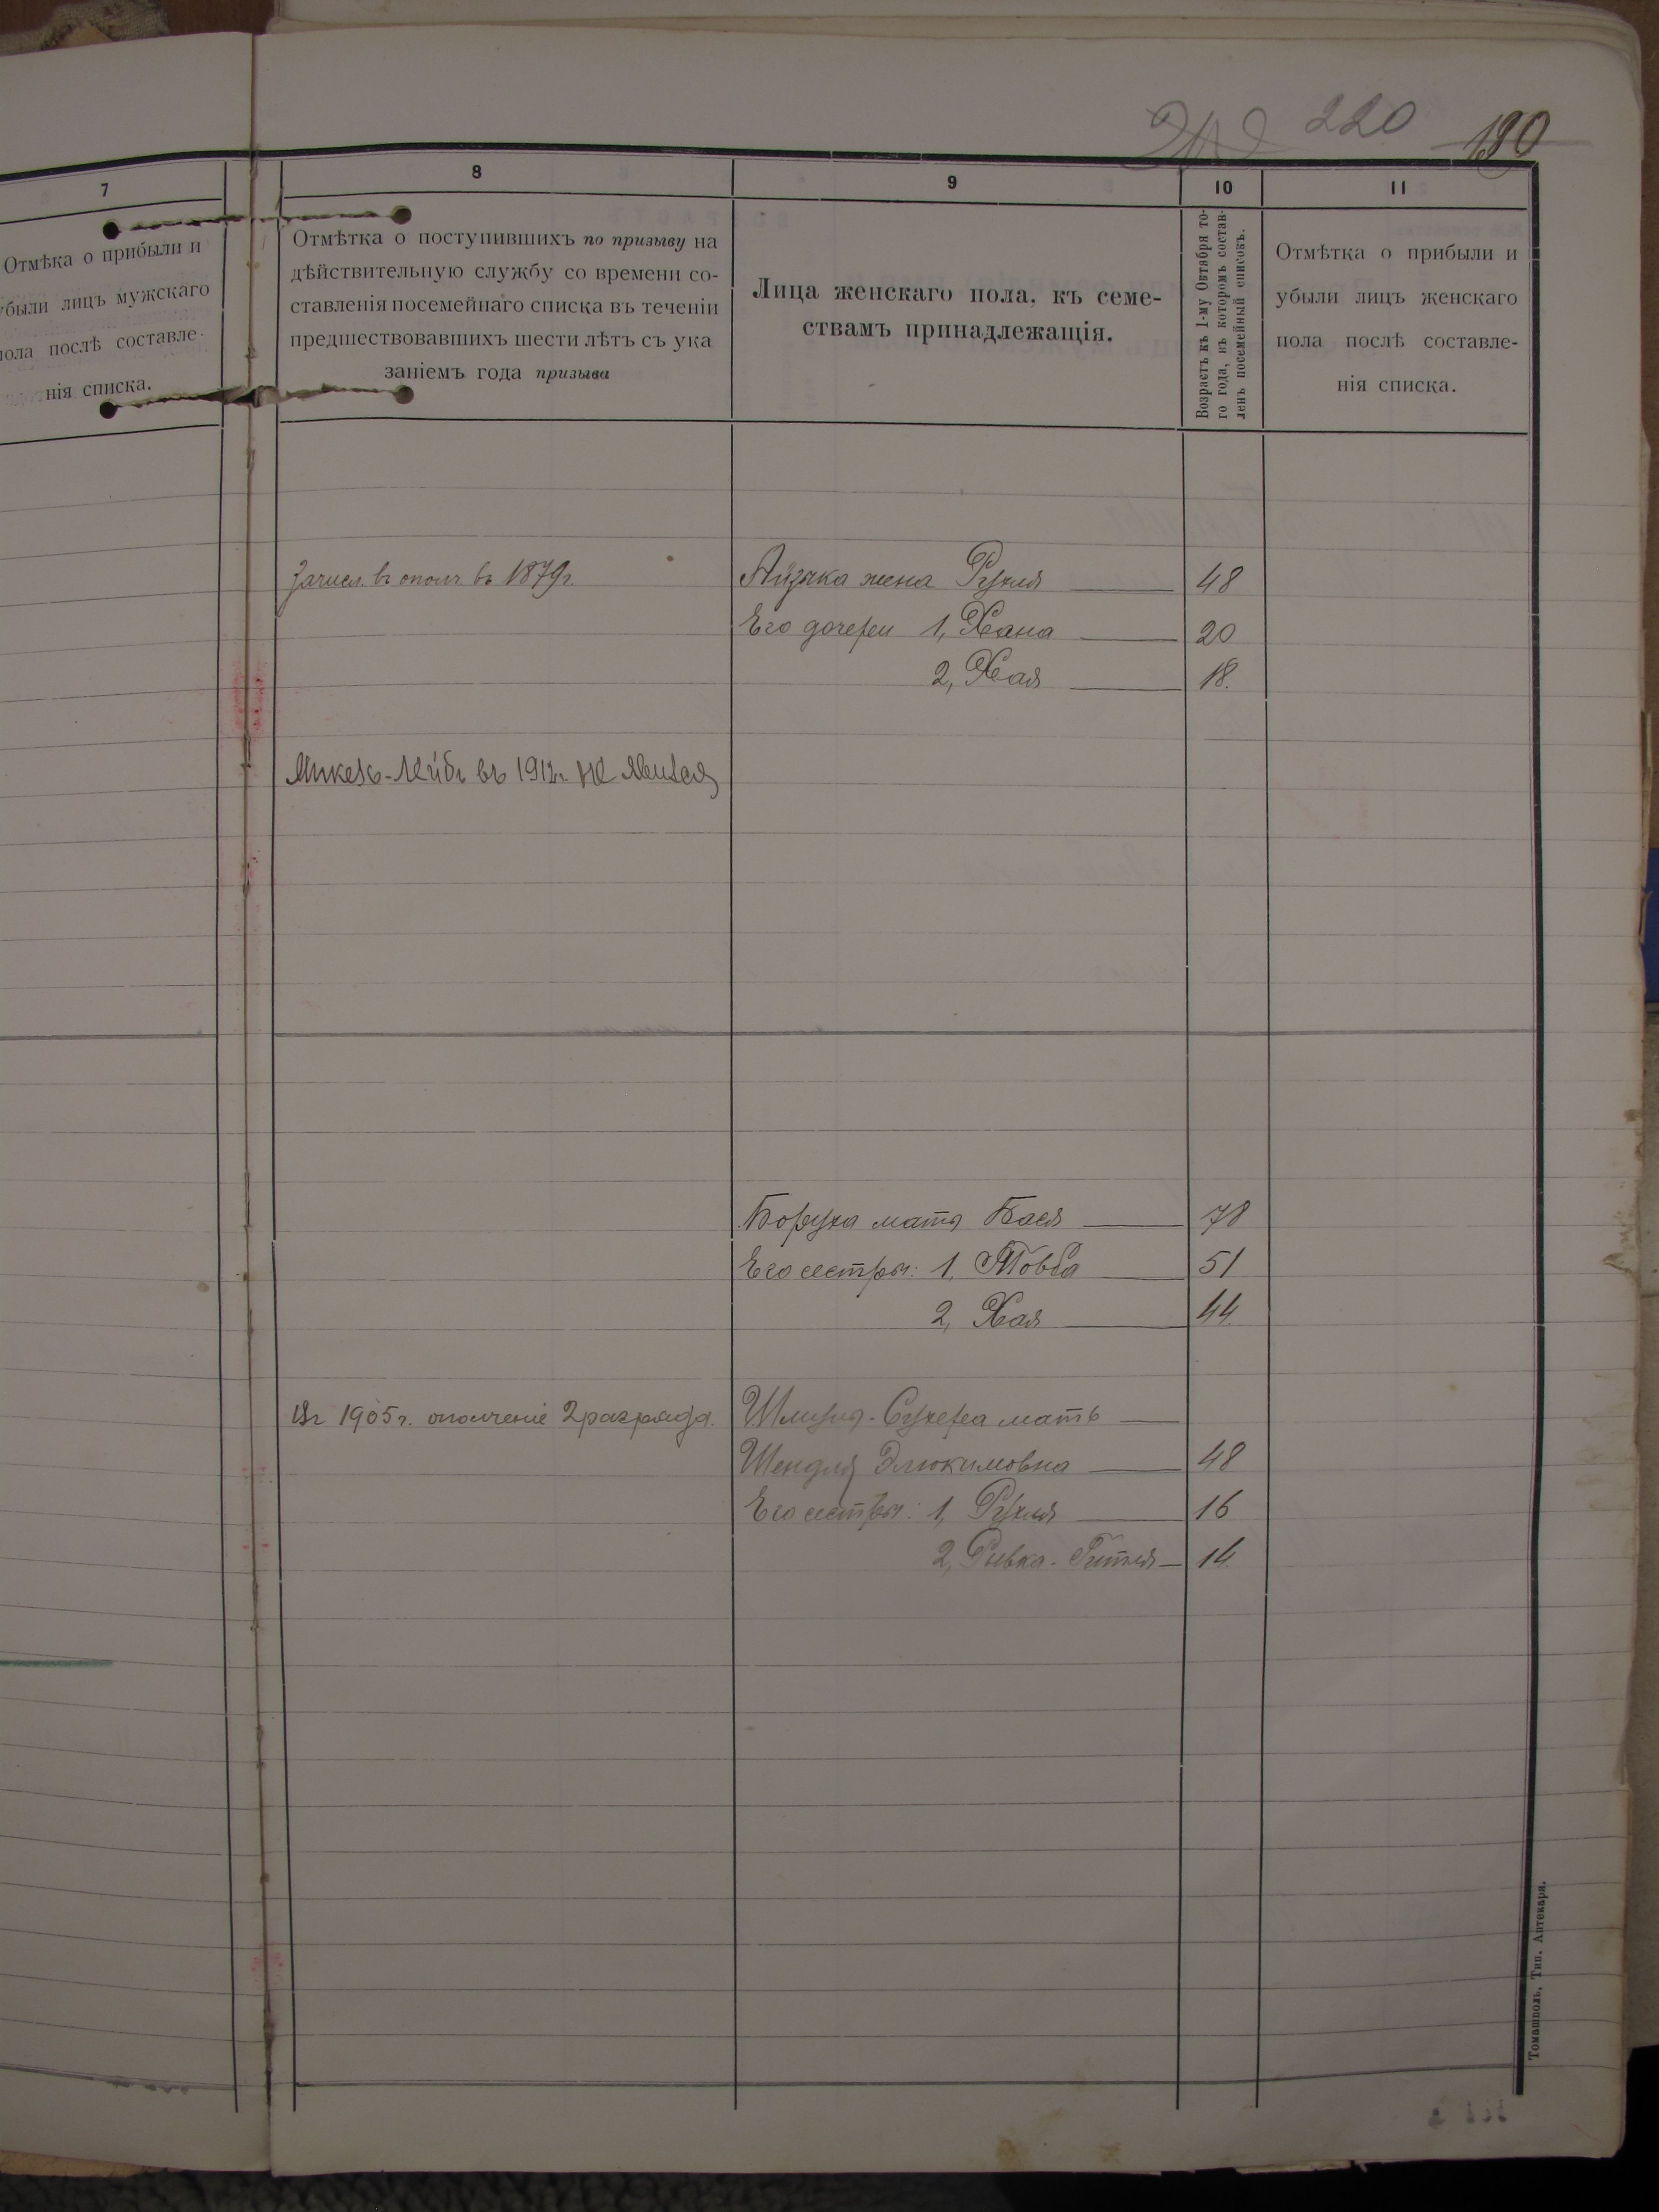 220 190
7 8 9 10 11
Отмѣка о прибыли и
убыли лицъ мужскаго
пола послѣ составле-
нія списка.
Отмѣтка о поступившихъ по призыву на
дѣйствительную службу со времени со-
ставленія посемейнаго списка въ теченіи
предшествовавшихъ шести лѣтъ съ ука
заніемъ года призыва
Лица женскаго пола, къ семе-
ствамъ принадлежащія.
Возрастъ къ 1-му Октября то-
го года, въ которомъ состав-
ленъ посемейный списокъ.
Отмѣтка о прибыли и
убыли лицъ женскаго
пола послѣ составле-
нія списка.
Зачисл. въ ополч въ 1879г. Айзика жена Рухля 48
Его дочери 1, Хана 20
2, Хая 18.
Микель-Лейбъ въ 1912г. не явился
Боруха мать Бася 78
Его сестры: 1, Товба 51
2, Хая 44.
Въ 1905г. ополченіе 2 разряда. Сухера мать
Шендля Элюкимовна 48
Его сестры: 1, Рухля 16
2, Ривка-Гитля 14.
Томашполь, Тип. Аптекаря.